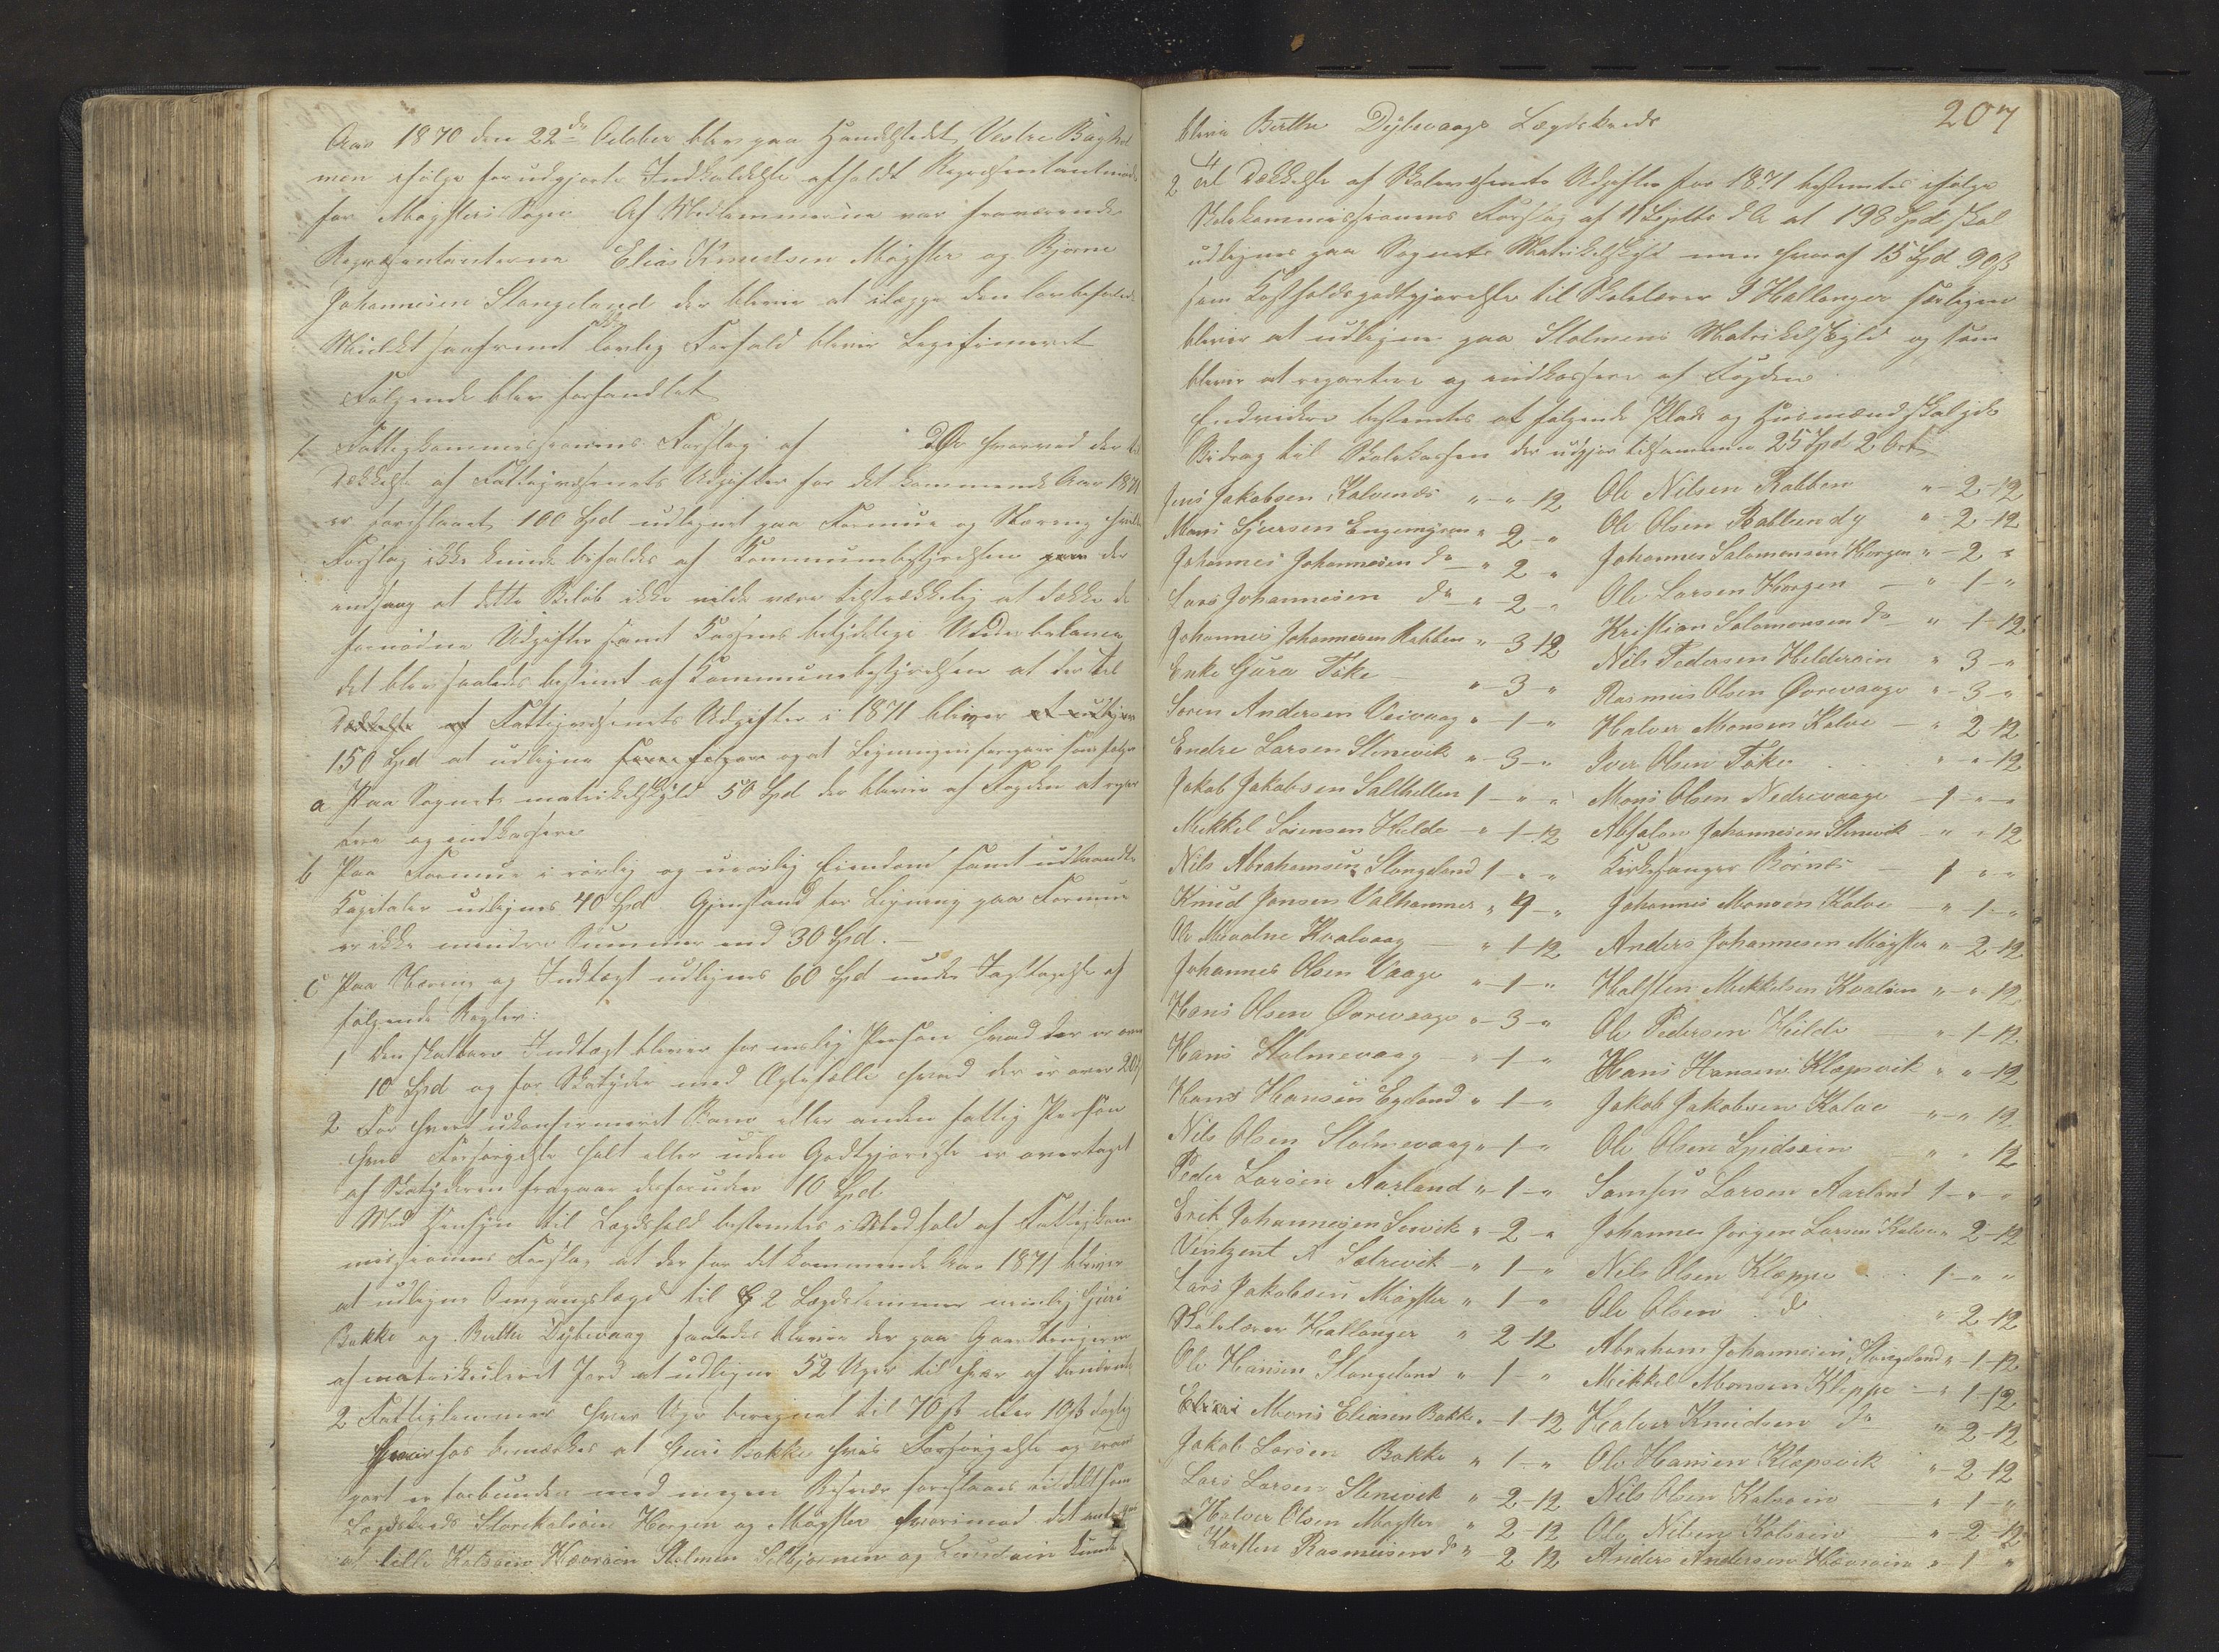 Aar 1870 den 22de October blev paa Handelstedet Vestre Baghol
men ifølge forudgjorte Indkaldelse afholdt Repræsentantmøde
for Møgsters Sogn Af Medlemmerne var fraværende
Repræsentanterne Elias Knudsen Møgster og Bjørne
Johannesen Stangeland der bliver at ilægge den lovbefalede
Mulkt saafremt ikke lovlig Forfald bliver Legitimeret
Følgende blev forhandlet
1 Fattigkommissionens Forslag af d A hvorved der til
Dækkelse af Fattigvæsenets Udgifter for det kommende Aar 1871
er foreslaaet 100 Spd udlignet paa Formue og Næring hvilket
Forslag ikke kunde bifaldes af Kommunebestyrelsen der
ansaag at dette Beløb ikke vilde være tilstrækkelig at dække de
fornødne Udgifter samt Kassens betydelige Underbalance
det blev saaledes bestemt af Kommunebestyrelsen at der til
Dækkelse af Fattigvæsenets Udgifter i 1871 bliver at udligne
150 Spd at udligne som følger og at Ligningen foregaar som følger
a Paa Sognets matrikelskyld 50 Spd der bliver af Fogden at repar
tere og indkassere
b Paa Formue i rørlig og urørlig Eiendom samt udlaante
Kapitaler udlignes 40 Spd Gjenstand for Ligning paa Formue
er ikke mindre Summer end 30 Spd. —
c Paa Næring og Indtægt udlignes 60 Spd under Iagttagelse af
følgende Regler:
1 Den skatbare Indtægt bliver for enslig Person hvad der er over
10 Spd og for Skatyder med Ægtefælle hvad der er over 20
2 For hvert ukonfirmeret Barn eller anden fattig Person
hvis Forsørgelse helt eller uden Godtgjørelse er overtaget
af Skatyderen fragaar desforuden 10 Spd
Med Hensyn til Lægdshold bestemtes i Medhold af Fattigkom
missionens Forslag at der for det kommende Aar 1871 bliver
at udligne Omgangslægd til 2 Lægdslemmer nemlig Guri
Bakke og Berthe Dybevaag saaledes bliver der paa Gaardbrugerne
af matrikuleret Jord at udligne 52 Uger til hver af benævnte
2 Fattiglemmer hver Uge beregnet til 70 ß eller 10 ß daglig
hvorhos bemærkes at Guri Bakke hvis Forsørgelse og trans
port er forbunden med megen Besvær foreslaaes tildelt som
Lægdskreds Storekalsøen Horgen og Møgster hvorimod det
af lille Kalsøen Hævrøen Stolmen Selbjørnen og kunde
207
blive Berthe Dybevaags Lægdskreds
2 Til Dækkelse af Skolevæsenets Udgifter for 1871 bestemtes ifølge
Skolekommissionens Forslag af 11 Septbr d A at 198 Spd skal
udlignes paa Sognets Matrikelskyld men hvoraf 15 Spd 90 ß
som Kostholdsgodtgjørelse til Skolelærer J Hallanger særligen
bliver at udligne paa Stolmens Matrikelskyld og som
bliver at repartere og indkassere af Fogden
Endvidere bestemtes at følgende Plads og Husmænd skal yde
Bidrag til Skolekassen der udgjør tilsammen 25 Spd 2 Ort
Jens Jakobsen Kalvenes " - " - 12 Ole Nilsen Rabben " - 2 - 12
Mons Sjursen Engemyren " 2 - " Ole Olsen Rabben dy " - 2 - 12
Johannes Johannesen do — " 2 - " Johannes Salomonsen Horgen " - 2 - "
Lars Johannesen do — " - 2 - " Ole Larsen Horgen — " - 1 - "
Johannes Johannesen Rabben " 3 12 Kristian Salomonsen do " - 1 - 12
Enke Gura Føke — " - 3 - " Nils Pedersen Heldøroen " 3 - "
Søren Andersen Veivaag " - 1 - " Rasmus Olsen Ørevaage " - 3 - "
Endre Larsen Stenevik " - 3 - " Halver Monsen Kalve — " 2 12
Jakob Jakobsen Salthellen 1 - " - " Iver Olsen Føke . . . " - " 12
Mikkel Sørensen Hilde — " 1 - 12 Mons Olsen Nedrevaage — 1 - " - "
Nils Abrahamsen Stangeland 1 - " - " Absalon Johannesen Stenevik - " - " 12
Knud Jansen Valhammer " 4 - " Kirkesanger Børnes — 1 " - "
Ole Kvalvaag — " 1 - 12 Johannes Monsen Kalve — " - 1 - "
Johannes Olsen Vaage " - 1 - " Anders Johannesen Møgster " - 2 - 12
Hans Olsen Ørevaage " - 3 - " Halsten Mikkelsen Kvaløen " - " - 12
Hans Stolmevaag — " - 1 - " Ole Pedersen Hilde " - 1 - 12
Hans Hansen Egeland " 1 - " Hans Hansen Klepsvik " - " - 12
Nils Olsen Stolmevaag " - 1 - " Jakob Jakobsen Kalve " - " 12
Peder Larsen Aarland " - 1 - " Ole Olsen Spidsøen " - " 12
Erik Johannesen Servik " - 2 - " Samson Larsen Aarland 1 - " - "
Vintzent A Sætrevik — " 1 - " Johannes Jørgen Larsen Kalve " 2 - 12
Lars Jakobsen Møgster " 1 - " Nils Olsen Kleppe . . . 1 - " - "
Skolelærer Hallanger " 2 - 12 Ole Olsen do " 2 - 12
Ole Hansen Stangeland " 1 - " Abraham Johannesen Stangeland " - 1 - 12
Mons Eliasen Bakke " - 1 - 12 Mikkel Monsen Kleppe — " 1 - 12
Jakob Larsen Bakke " 1 - " Halver Knudsen do " 2 - 12
Lars Larsen Stenevik " - 2 - 12 Ole Hansen Klepsvik " - 2 - 12
Halver Olsen Møgster " 2 - 12 Nils Olsen Kalsøen " - 1 - "
Karsten Rasmusen do " - 2 12 Ole Nilsen Kalsøen " - 2 - 12
Anders Andersen Hævrøen " - 1 "